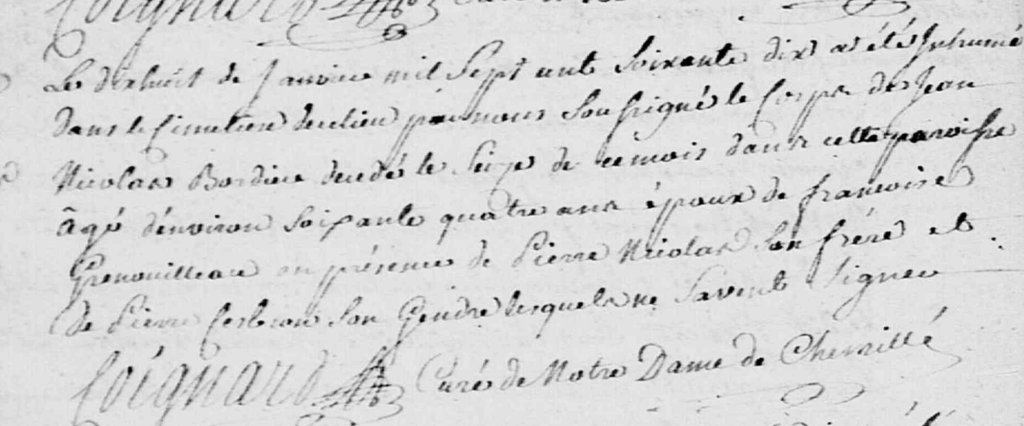 Coignard
Le dixhuit de Janvier mil Sept cents Soixante dix a été Inhumé
dans le Cimetiere de ce lieu par nous Soussigné le Corps de Jean
Nicolas decedé le Seize de ce mois dans cette paroisse
âgé d'environ soixante quatre ans époux de françoise
Grenouilleau en présence de Pierre Nicolas Son frére et
de Pierre Son Gendre lesquels ne Savent Signer
Coignard Curé de Notre Dame de Chemillé